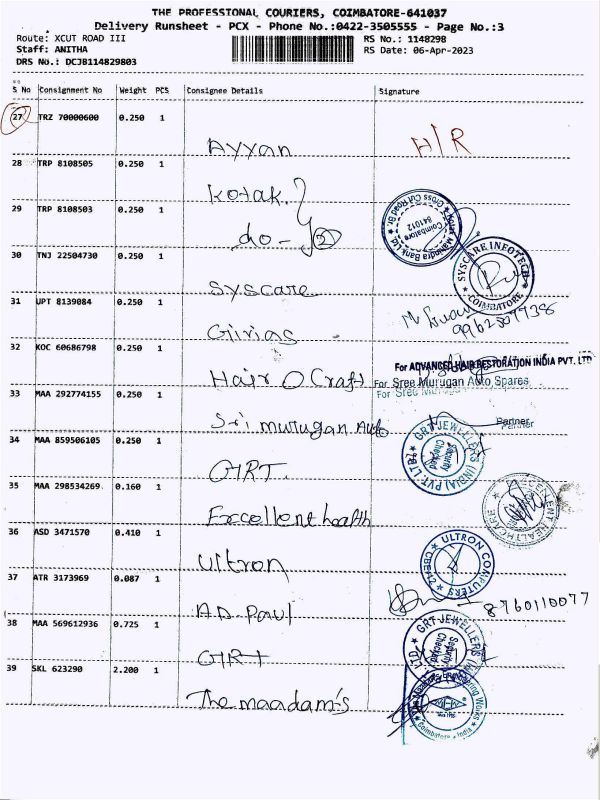 THE PROFESSIONAL COURIERS, COIMBATORE-641037
Delivery Runsheet - PCX - Phone No.:0422-3505555 - Page No.:3
Route: XCUT ROAD III RS No.: 1148298
Staff: ANITHA RS Date: 06-Apr-2023
DRS No.: DCJB114829803
S No Consignment No Weight PCS Consignee Details Signature
27 TRZ 70000600 0.250 1
Ayyan H/R
28 TRP 8108505 0.250 1
Kotak
29 TRP 8108503 0.250 1
do - 2
Kotak Mahindra Bank Ltd. Cross Cut Road Br. Coimbatore 641012
30 TNJ 22504730 0.250 1
Syscare
SYSCARE INFOTECH COIMBATORE
31 UPT 8139084 0.250 1
Girias
9962507738
32 KOC 60686798 0.250 1
Hair O Craft
For ADVANCED HAIR RESTORATION INDIA PVT. LTD
33 MAA 292774155 0.250 1
For Sree Murugan Auto Spares
For Sree Murugan
Sri murugan Auto
Partner
34 MAA 859506105 0.250 1
GRT
GRT JEWELLERS (INDIA) PVT. LTD. Security Checked
35 MAA 298534269 0.160 1
Excellent health
36 ASD 3471570 0.410 1
Ultron
ULTRON COMPUTERS
37 ATR 3173969 0.087 1
AD Paul
8760110077
38 MAA 569612936 0.725 1
GRT
GRT JEWELLERS LTD. Security Checked
39 SKL 623290 2.200 1
The maadam's
Engineering Works Coimbatore India